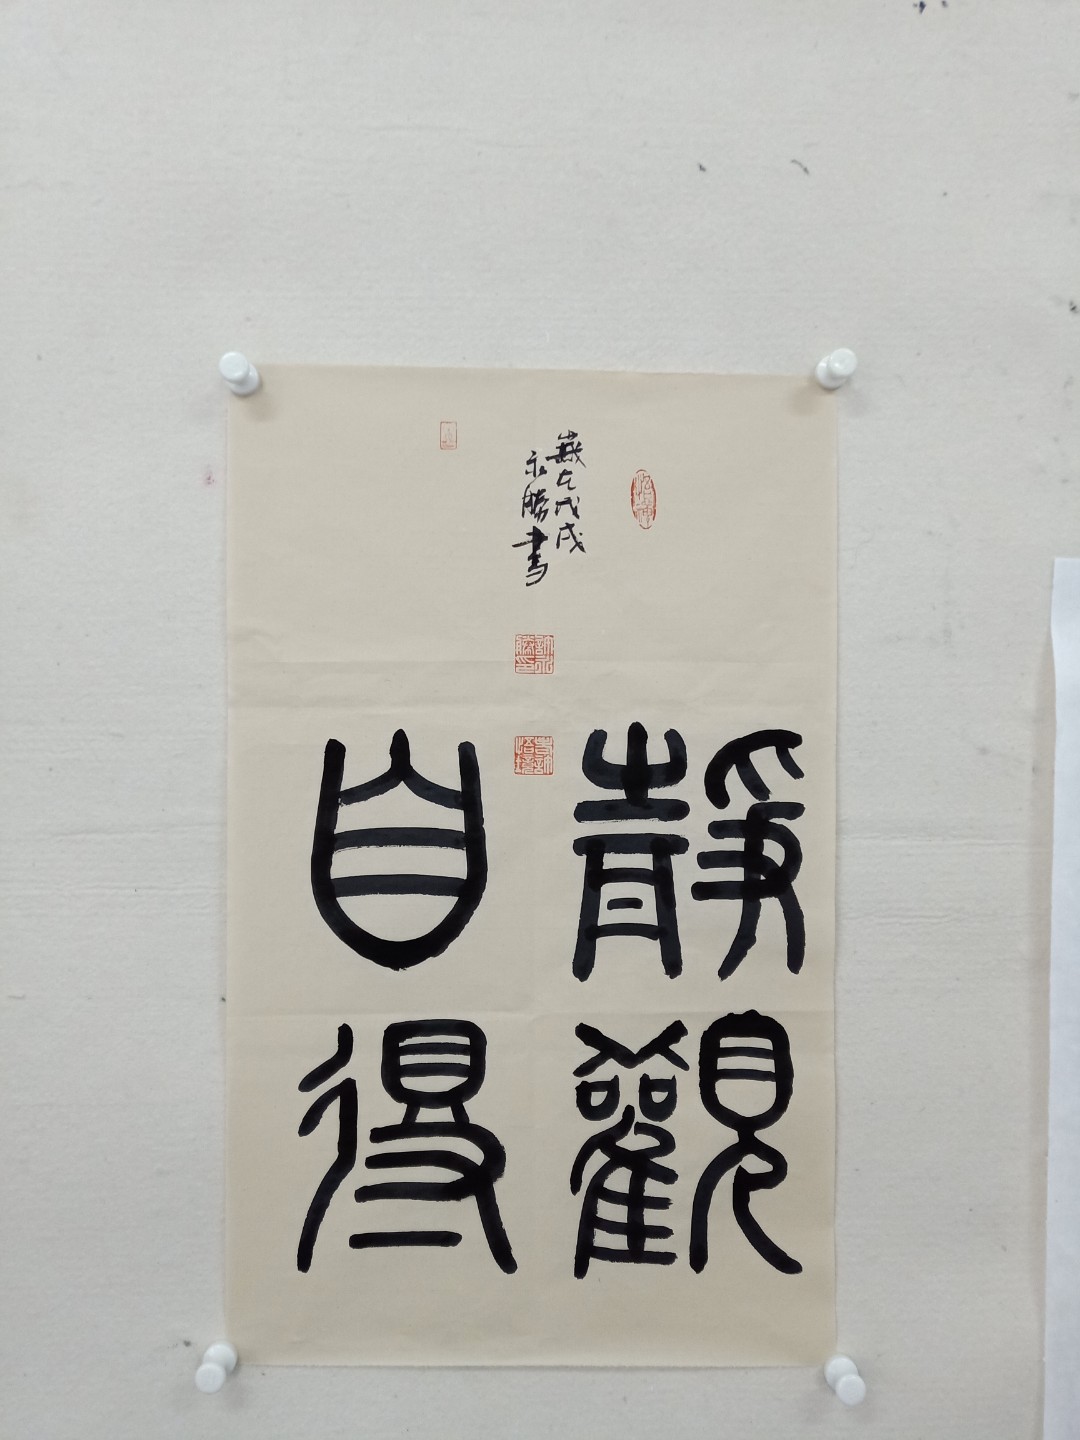 靜觀
自得
歲在戊戌
永勝書